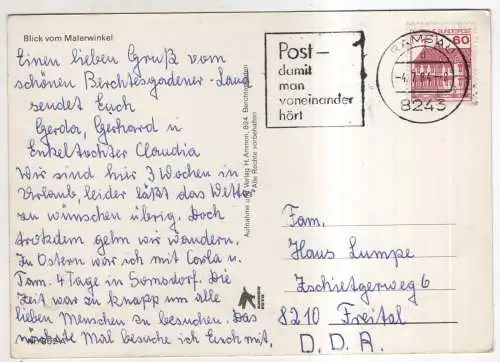 Blick vom Malerwinkel
Einen lieben Gruß vom
schönen Berchtesgadener-Land
sendet Euch
Gerda, Gerhard u
Enkeltochter Claudia
Wir sind hier 3 Wochen in
Urlaub, leider läßt das Wetter
zu wünschen übrig. Doch
trotzdem gehn wir wandern.
Zu Ostern war ich mit Carla u.
Fam. 4 Tage in Somsdorf. Die
Zeit war zu knapp um alle
lieben Menschen zu besuchen. Das
nächste Mal besuche ich Euch mit.
Aufnahme und Verlag H. Ammon, 824 Berchtesgaden
Alle Rechte vorbehalten
Post –
damit
man
voneinander
hört
RAMSAU
8243
BUNDESPOST
60
Fam.
Hans Lumpe
Zschietgerweg 6
8210 Freital
D. D. R.